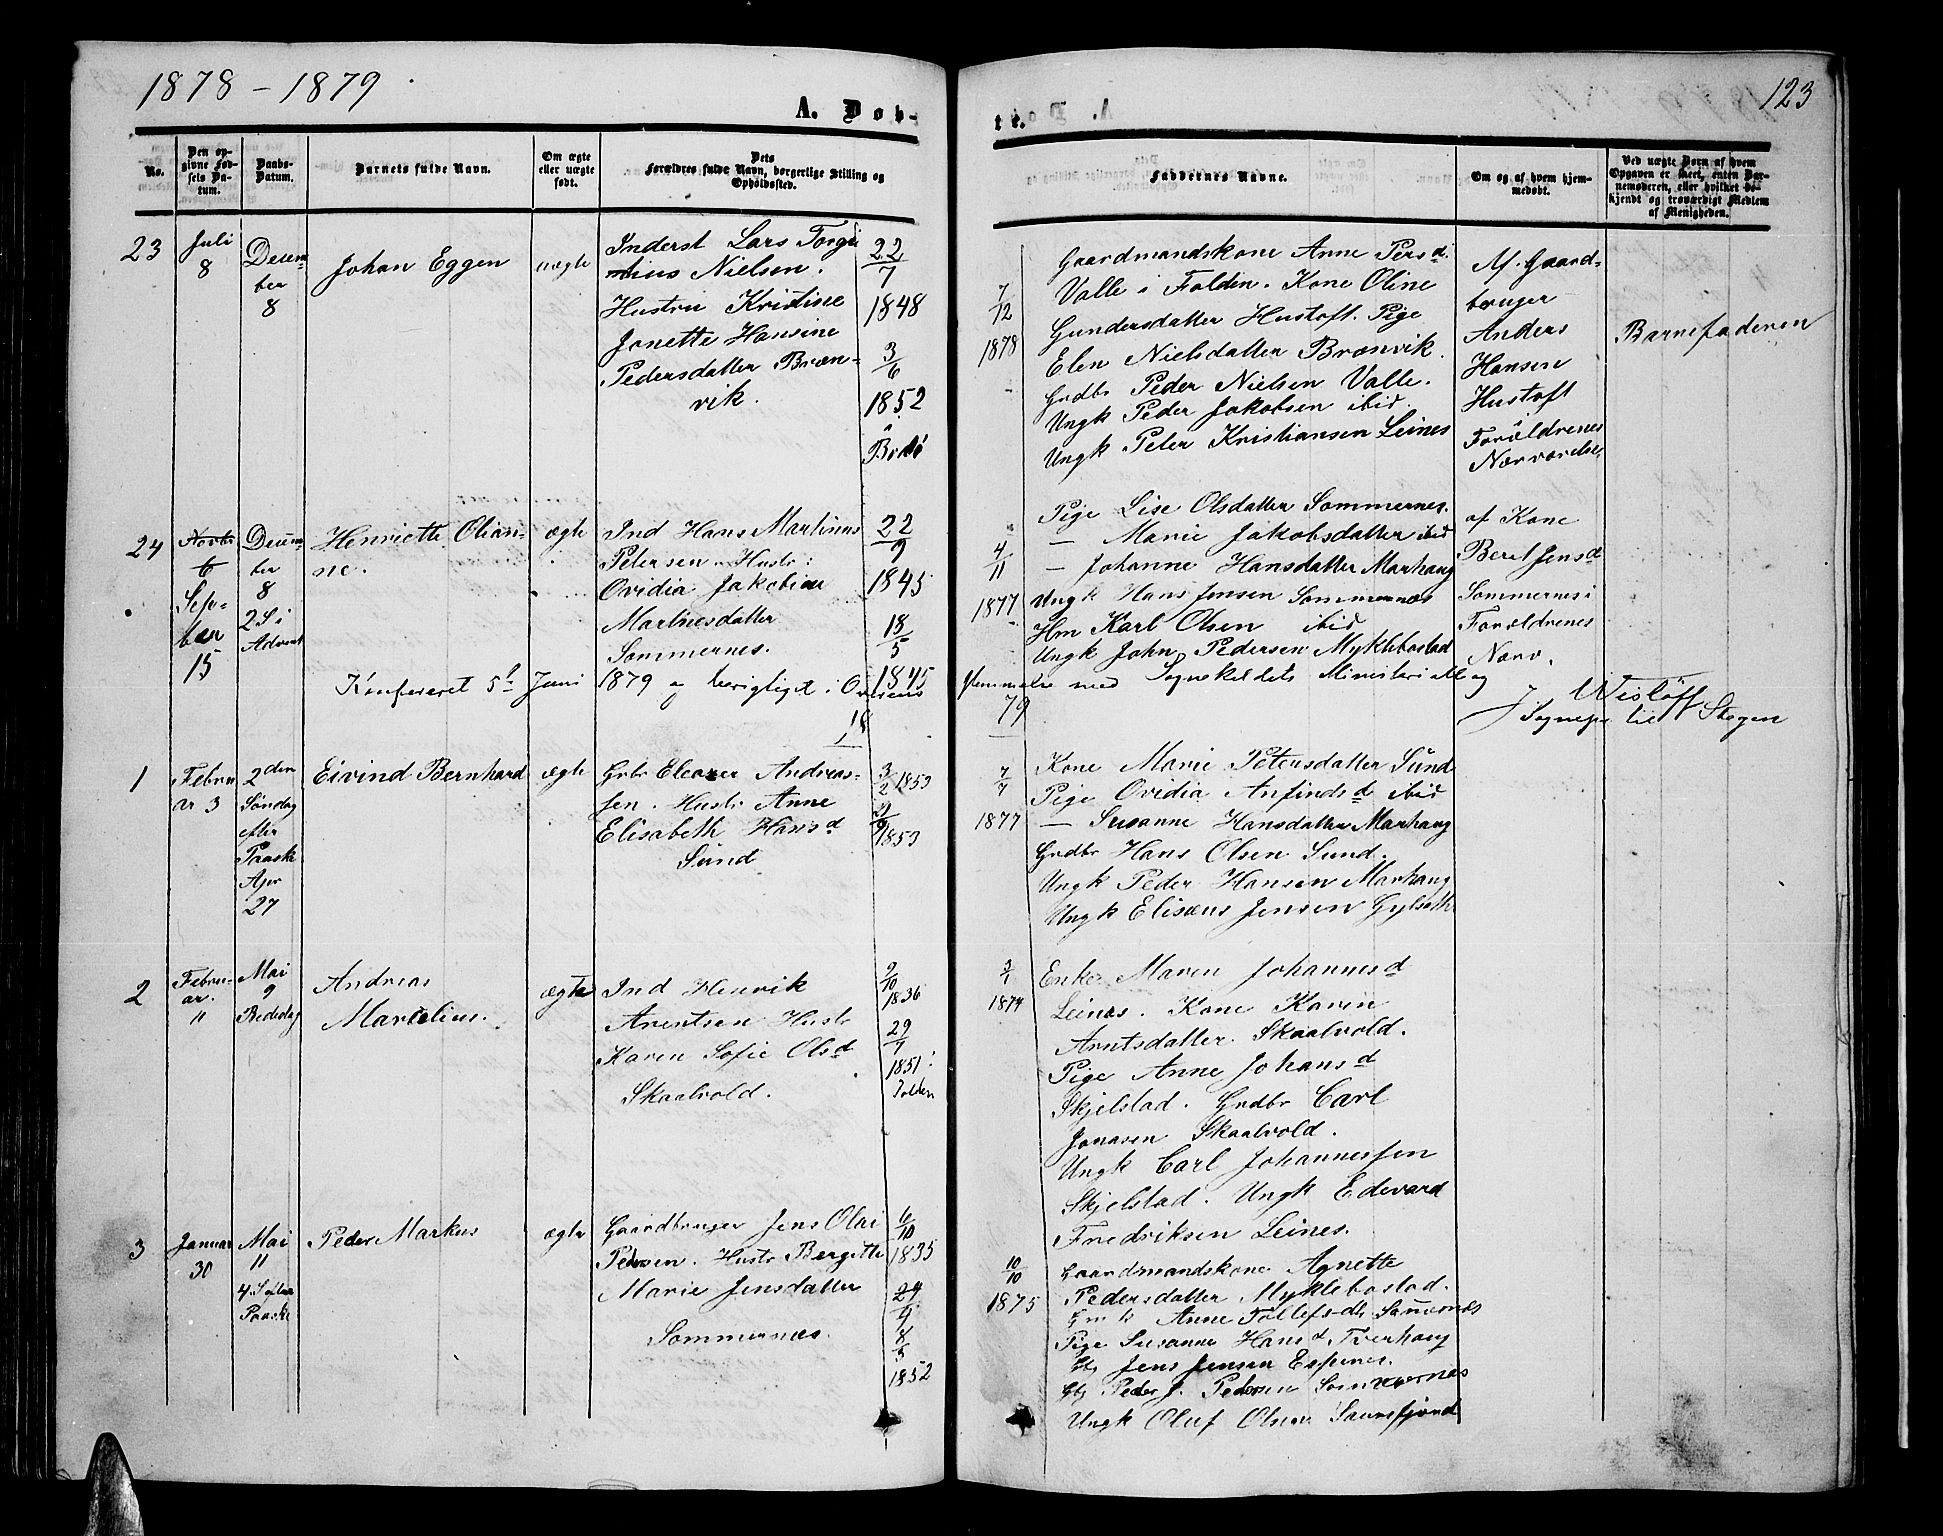 1878 - 1879
A. Døb-
te.
123
No.
Den op-
givne Fød-
sels Da-
tum.
Daabs-
Datum.
Barnets fulde Navn.
Om ægte
eller uægte
født.
Dets
Forældres fulde Navn, borgerlige Stilling og
Opholdssted.
Faddernes Navne.
Om og af hvem hjem-
medøbt.
Ved uægte Børn af hvem
Opgaven er skeet, enten Bar-
nemoderen, eller hvilket be-
kjendt og troværdigt Medlem
af Menigheden.
23
Juli
8
Decem-
ber
8
Johan Eggen
uægte
Inderst Lars Torgi
Nielsen.
Hustru Kristine
Jonette Hansine
Pedersdatter Bræn-
vik.
22
7
1848
3
6
1852
Bodø
7
12
1878
Gaardmandskone Anne Persd.
Valle i Folden. Kone Oline
Gundersdatter Hustoft. Pige
Elen Nielsdatter Brænvik.
Grdbr Peder Nielsen Valle.
Ungk Peder Jakobsen ibid.
Ungk Peter Kristiansen Leines
Af Gaard-
bruger
Anders
Hansen
Hustoft
Forældrenes
Nærværelse
Barnefaderen
24
Novbr
6
Sep-
ber
15
Decem-
ber
8
2 S i
Advent
Henriette Olian-
ne.
ægte
Ind Hans Martinus
Petersen. Hustr:
Ovidia Jakobine
Martinesdatter
Sommernes.
22
9
1845
18
5
1845
4
11
1877
Pige Lise Olsdatter Sommernes.
— Marie Jakobsdatter ibid
— Johanne Hansdatter Marhaug
Ungk Hans Jensen Sommernæs
Hm Karl Olsen ibid
Ungk John Pedersen Myklebostad
af Kone
Beret Jensd
Sommernes i
Forældrenes
Nærv.
Konfereret 5t Juni 1879 og berigtiget i Overens
stemmelse med Sognekaldets Ministerialbog
18
79
J. Wisløff
Sognepr til Stegen
1
Febru
ar 3
2den
Søndag
efter
Paaske
Apr
27
Eivind Bernhard
ægte
Grbr Eleazer Andreas-
sen. Hustr Anne
Elisabeth Hansd
Sund
3
2 1853
1853
7
7
1877
Kone Marie Petersdatter Sund
Pige Ovidia Anfindsd ibid
— Susanne Hansdatter Marhaug
Grdbr Hans Olsen Sund.
Ungk Peder Hansen Marhaug
Ungk Elisæus Jensen Gylseth
2
Febru-
ar.
11
Mai
9
Bededag
Andreas
Marcelius.
ægte
Ind Henrik
Arentsen Hustr
Karen Sofie Olsd
Skaalvold.
9
10
1836
29
7
1851:
Folden
3
1
1874
Enke Maren Johannesd
Leines. Kone Karen
Arntsdatter Skaalvold.
Pige Anne Johansd
Skjelstad. Grdbr Carl
Jonasen Skaalvold.
Ungk Carl Johannessen
Skjelstad. Ungk Edevard
Fredriksen Leines.
3
Januar
30
Mai
11
4. S efter
Paaske
Peder Markus
ægte
Gaardbruger Jens Olai
Pedersen. Hustr Bergitte
Marie Jensdatter
Sommernæs.
6
10
1835
29
9
8
3
1852
10
10
1875
Gaardmandskone Agnette
Pedersdatter Myklebostad.
Anne Tollefsdtr
Pige Susanne Hansd Tverhaug
Jens Jensen Espenes.
Peder J. Pedersen Sommernes
Ungk Oluf Olsen